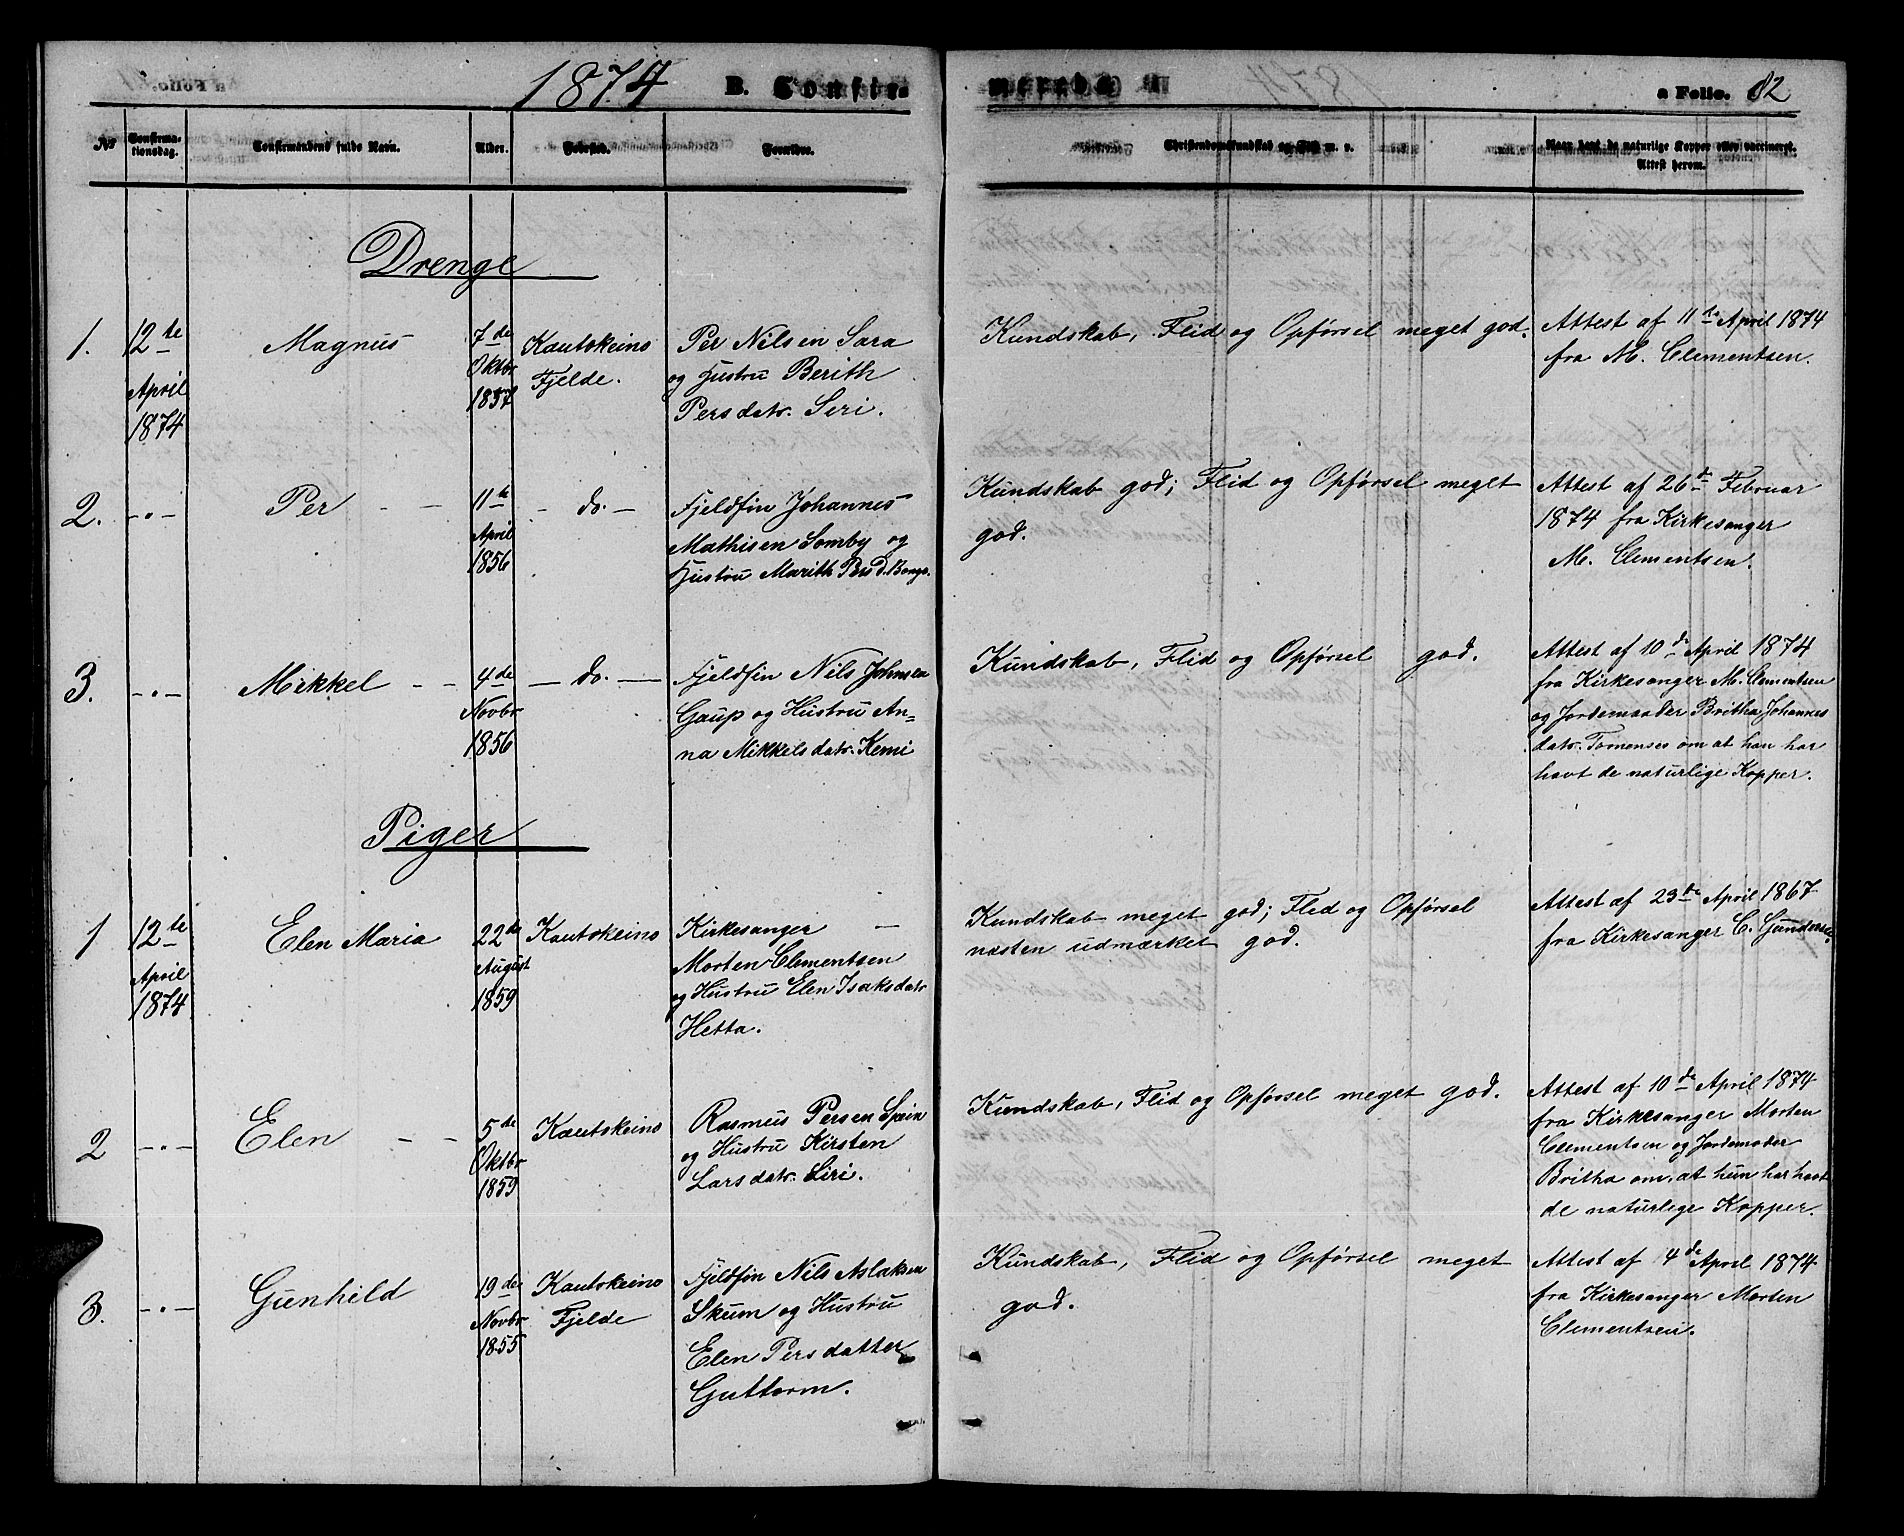 1874 B. Confir-
merede a Folio. 82
No
Confirma-
tionsdag.
Confirmandens fulde Navn.
Alder.
Fødested.
Forældre.
Christendomskundskab og Flid m. v.
Naar havt de naturlige Kopper eller vaccineret.
Attest herom.
Drenge
1.
12te
April
1874
Magnus
7de
Oktbr
1857
Kautokeino
Fjelde.
Per Nilsen Sara
og Hustru Berith
Persdatr. Seri.
Kundskab, Flid og Opførsel meget god.
Attest af 11te April 1874
fra M. Clementsen.
2.
-"-
Per
11te
April
1856
- do. -
Fjeldfin Johannes
Mathisen Somby og
Hustru Marith Persd. Bongo.
Kundskab god; Flid og Opførsel meget
god.
Attest af 26de Februar
1874 fra Kirkesanger
M. Clementsen.
3.
-"-
Mikkel
4de
Novbr
1856
- do. -
Fjeldfin Nils Johnsen
Gaup og Hustru An=
na Mikkelsdatr. Kemi
Kundskab, Flid og Opførsel god.
Attest af 10de April 1874
fra Kirkesanger M. Clementsen
og Jordemoder Britha Johannes
datr. Tornenses om at han har
havt de naturlige Kopper.
Piger
1
12te
April
1874
Elen Maria
22de
August
1859
Kautokeino
Kirkesanger
Morten Clementsen
og Hustru Elen Isaksdatr
Hetta.
Kundskab meget god; Flid og Opførsel
næsten udmærket god.
Attest af 23de April 1867
fra Kirkesanger C. Gundersen.
2
-"-
Elen
5de
Oktbr
1859
Kautokeino
Rasmus Persen Spein
og Hustru Kirsten
Larsdatr. Siri.
Kundskab, Flid og Opførsel meget god.
Attest af 10de April 1874
fra Kirkesanger Morten
Clementsen og Jordemoder
Britha om, at hun har havt
de naturlige Kopper.
3.
-"-
Gunhild
19de
Novbr
1855
Kautokeino
Fjelde
Fjeldfin Nils Aslaksen
Skum og Hustru
Elen Persdatter
Guttorm.
Kundskab, Flid og Opførsel meget
god.
Attest af 4de April 1874
fra Kirkesanger Morten
Clementsen.